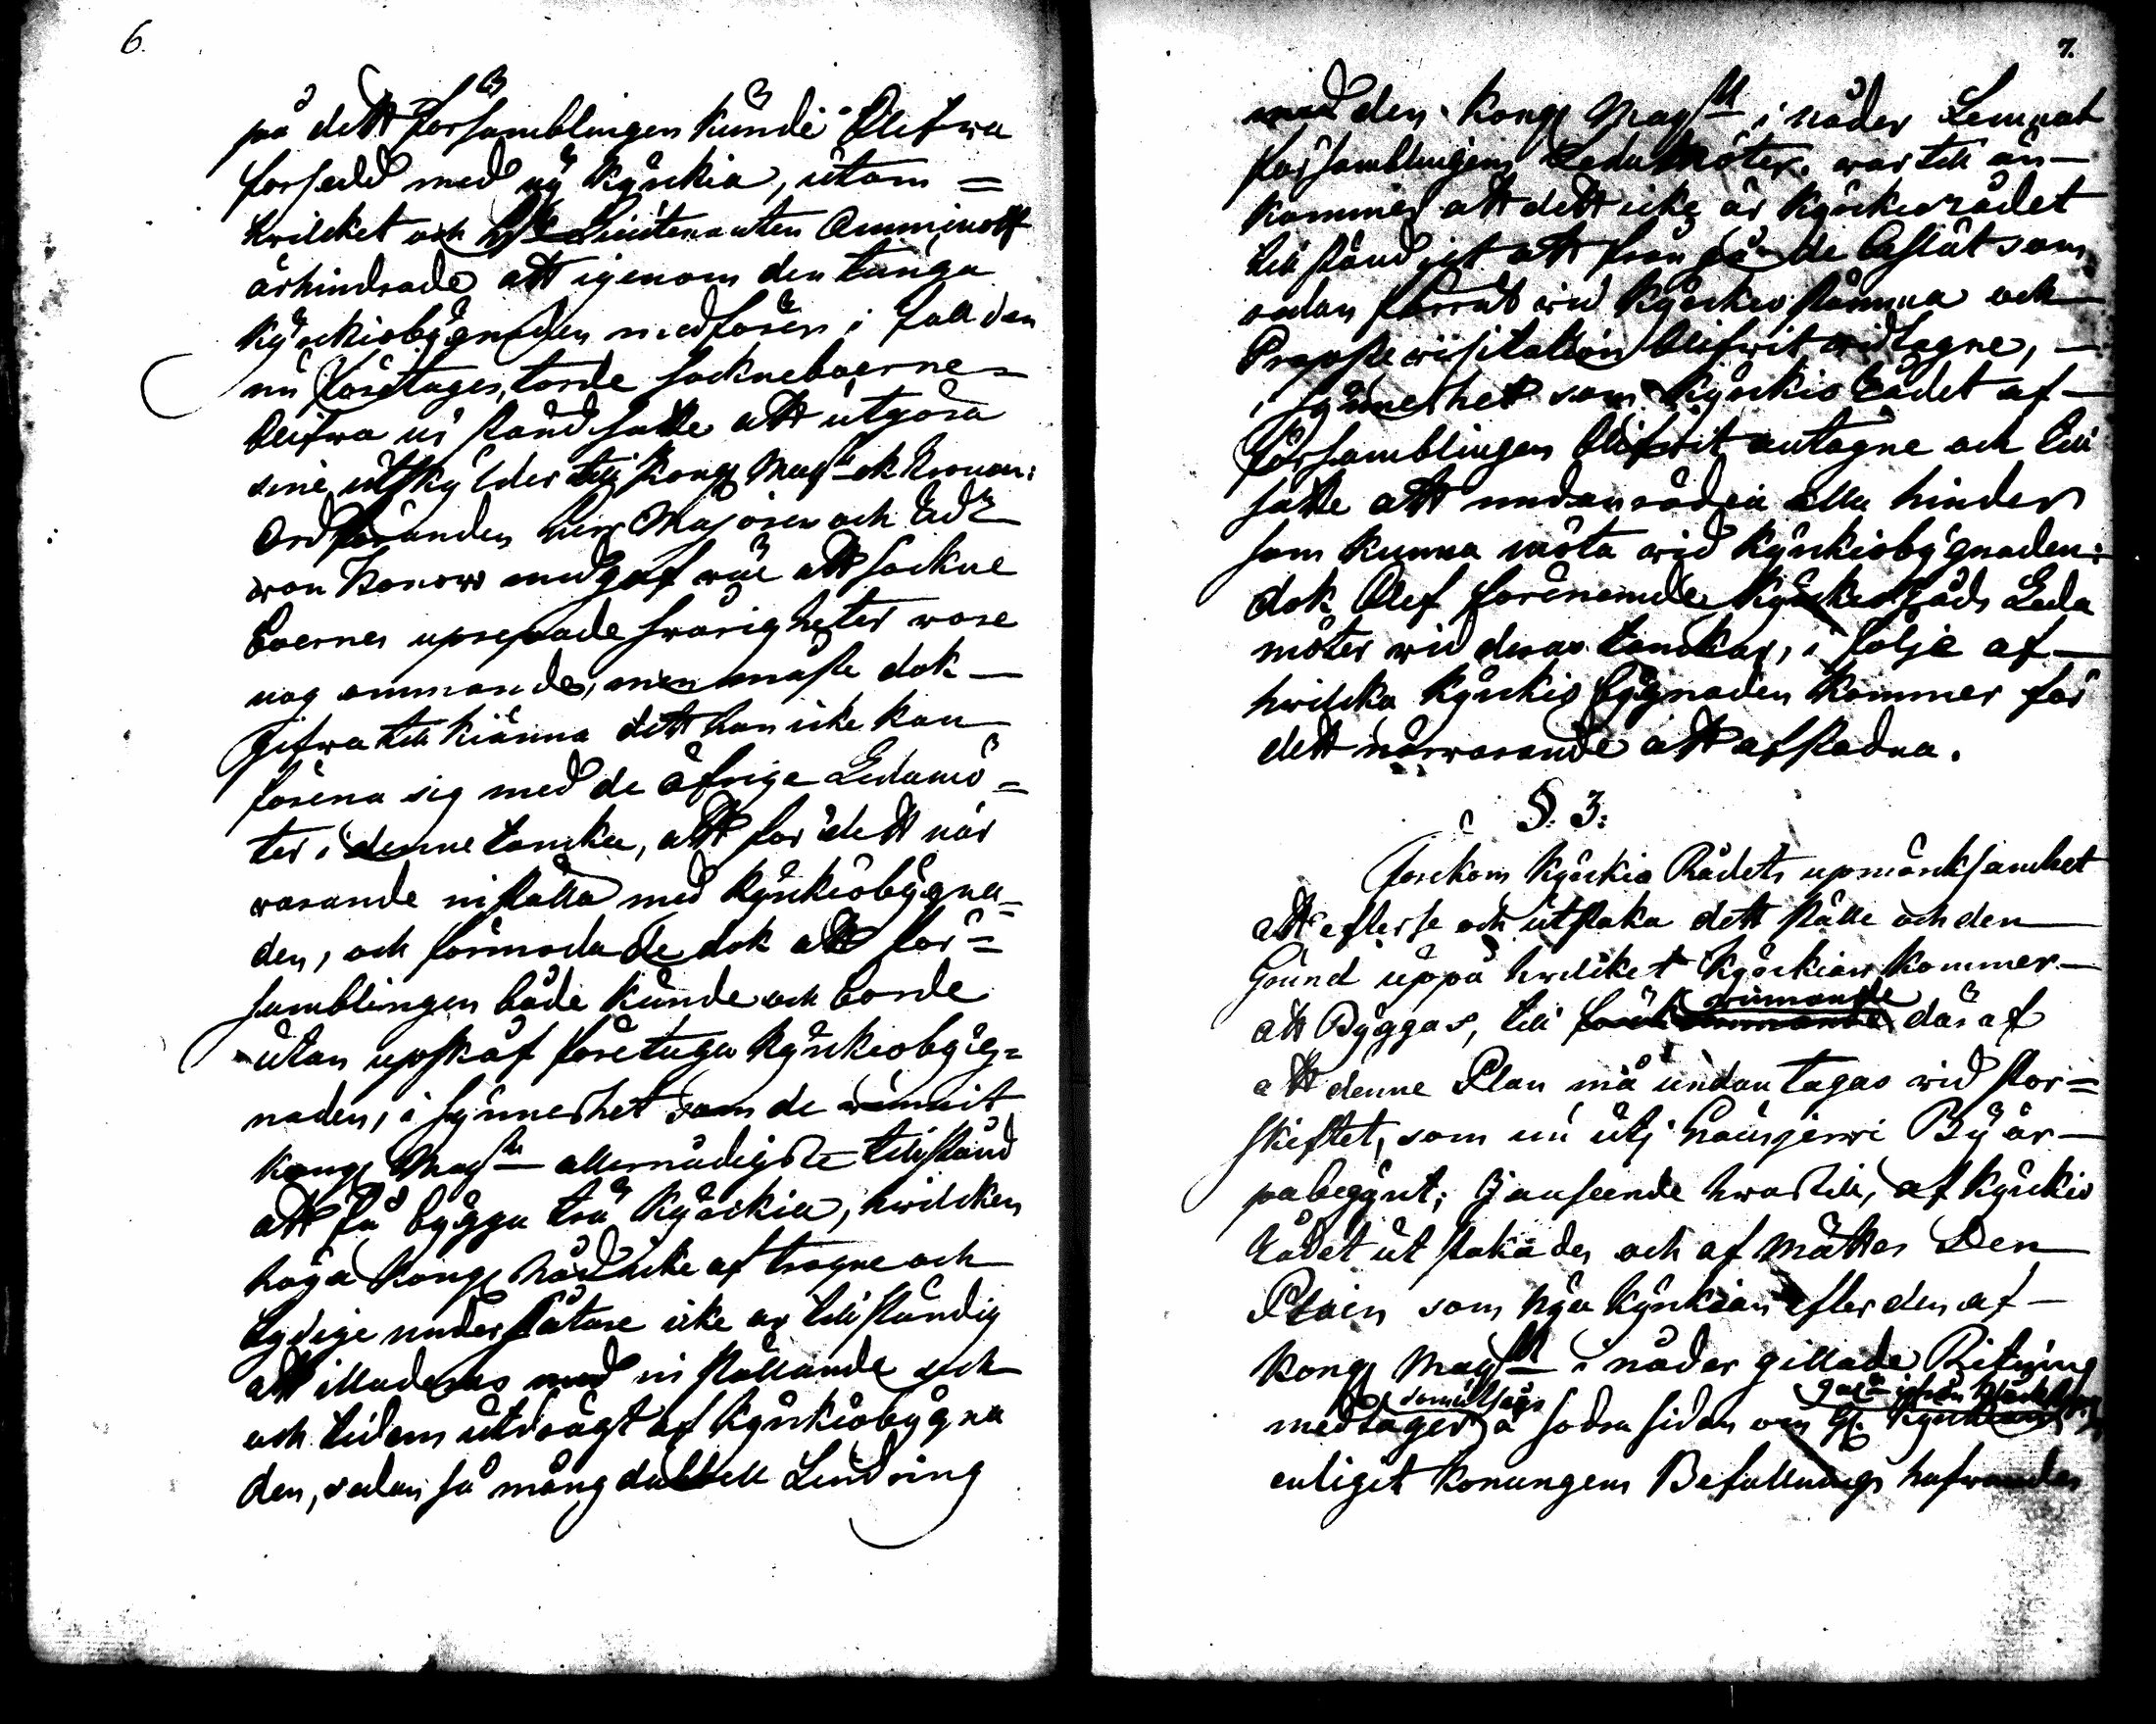 6.
på dett Församblingen kunde Blifwa
försedd med ny Kyrckia, utom =
hwilcket och H:r Lieutenanten Amminoff
ärhindrade att igenom den tunga
Kyrckiobygnaden medförer i fall den
nu företages, torde sockneboerne
blifwa ur stånd satte att utgöra
sine utskylder till Kongl Maj:tt ok Kronan:
Ordföranden herr Majoren och Rid:r
von Konow medgaf wäl att sockne
boernes upsepade swårigheter wore
nog ömmande, men måste dok
gifwa till kiänna dett han icke kan
förena sig med de öfrige Ledamö =
ter i denne tancka, att för dett när
warande inställa med Kyrckiobygna =
den, och förmodade dok att för =
samblingen både kunde och borde
utan upskåf företaga Kyrckiobyg =
naden, i synnerhet som de wunnit
Kongl Maj:tts allernådigste tillstånd
att få bygga trä Kyrckia, hwilcken
höga Kongl Nåd icke af trogne och
lydige undersåtare icke är tillständig
att illuderas med inställande och
och tidens utdrägt af Kyrckiobygna
den, sedan så mångdubbell Lindring
7.
med den Kongl Maj:tt i nåder Lemnat
församblingens Ledamöter. war till än
kommer att dett icke är Kyrckiorådet
tillständigt att från gå de beslut som
redan förrut wid Kyrckiostämma och
Prostewisitation blifwit widtagne,
i synnerhet som Kyrckio Rådet af
Församblingen blifwit antagne och till
satte att undanrödia alla hinder
som kunna möta wid Kyrckiobygnaden:
dok blef förenämde Kyrckioråds Leda
möter wid deras tanckar, i följe af
hwilcka Kyrckio bygnaden kommer för
dett närwarande att afstadna.
§. 3:
Förekom Kyrckio Rådets upmärcksamhet
att efterse och utstaka dett ställe och den
Grund uppå hwilcket Kyrckian kommer
att Byggas, till winnande däraf
att denne Plan må undantagas wid stor =
skiftet, som nu uti By är
påbegynt; I anseende hwartill, af Kyrckio
Rådet utstakades och afmättes Den
Platen som Nya Kyrckian efter den af
Kongl Maj:tt i nåder gillade Ritning
medtager å södra sidan om
enligit Konungens Befallnings hafwandes